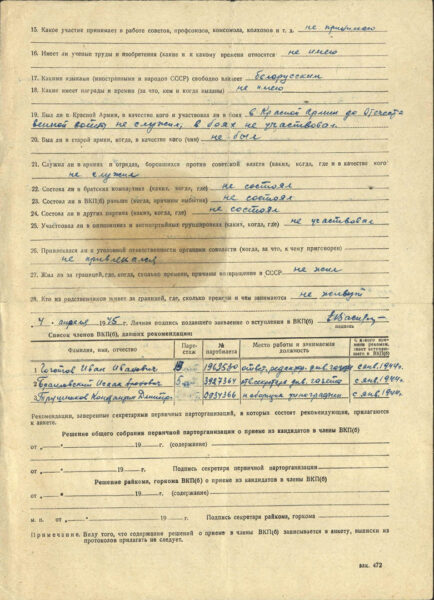 15. Какое участие принимает в работе советов, профсоюзов, комсомола, колхозов и т. д. не принимаю
16. Имеет ли ученые труды и изобретения (какие и к какому времени относятся не имею
17. Какими языками (иностранными и народов СССР) свободно владеет белорусским
18. Какие имеет награды и премии (за что, кем и когда выданы) не имею
19. Был ли в Красной Армии, в качестве кого и участвовал ли в боях в Красной Армии до Отечест-
венной войны не служил, в боях не участвовал.
20. Был ли в старой армии, когда, в качестве кого (чин) не был
21. Служил ли в армиях и отрядах, боровшихся против советской власти (каких, когда, где и в качестве кого
не служил
22. Состоял ли в братских компартиях (каких, когда, где) не состоял
23. Состоял ли в ВКП(б) раньше (когда, причины выбытия) не состоял
24. Состоял ли в других партиях (каких, когда, где) не состоял
25. Участвовал ли в оппозициях и антипартийных группировках (каких, когда, где) не участвовал
26. Привлекался ли к уголовной ответственности органами совласти (когда, за что, к чему приговорен)
не привлекался
27. Жил ли за границей, где, когда, сколько времени, причины возвращения в СССР не жил
28. Кто из родственников живет за границей, где, сколько времени и чем занимаются не живут
„4“ апреля 1945 г. Личная подпись подавшего заявление о вступлении в ВКП(б)
подпись
Список членов ВКП(б), давших рекомендации:
Фамилия, имя, отчество Парт-стаж № партбилета Место работы и занимаемая должность С какого времени рекомендующий знает вступающего в ВКП(б)
1 Иван Иванович отв. див. с янв. 1944 г.
2 Исаак 3927364 див. газета с янв. 1944 г.
3 с янв. 1944 г.
Рекомендации, заверенные секретарями первичных парторганизаций, в которых состоят рекомендующие, прилагаются
к анкете.
Решение общего собрания первичной парторганизации о приеме из кандидатов в члены ВКП(б)
от „ “ 19 г. (содержание)
от „ “ 19 г. Подпись секретаря первичной парторганизации
Решение райкома, горкома ВКП(б) о приеме из кандидатов в члены ВКП(б)
от „ “ 19 г. (содержание)
м. п. от „ “ 19 г. Подпись секретаря райкома, горкома ВКП(б)
Примечание. Ввиду того, что содержание решений о приеме в члены ВКП(б) записывается в анкету, выписки из
протоколов прилагать не следует.
зак. 472